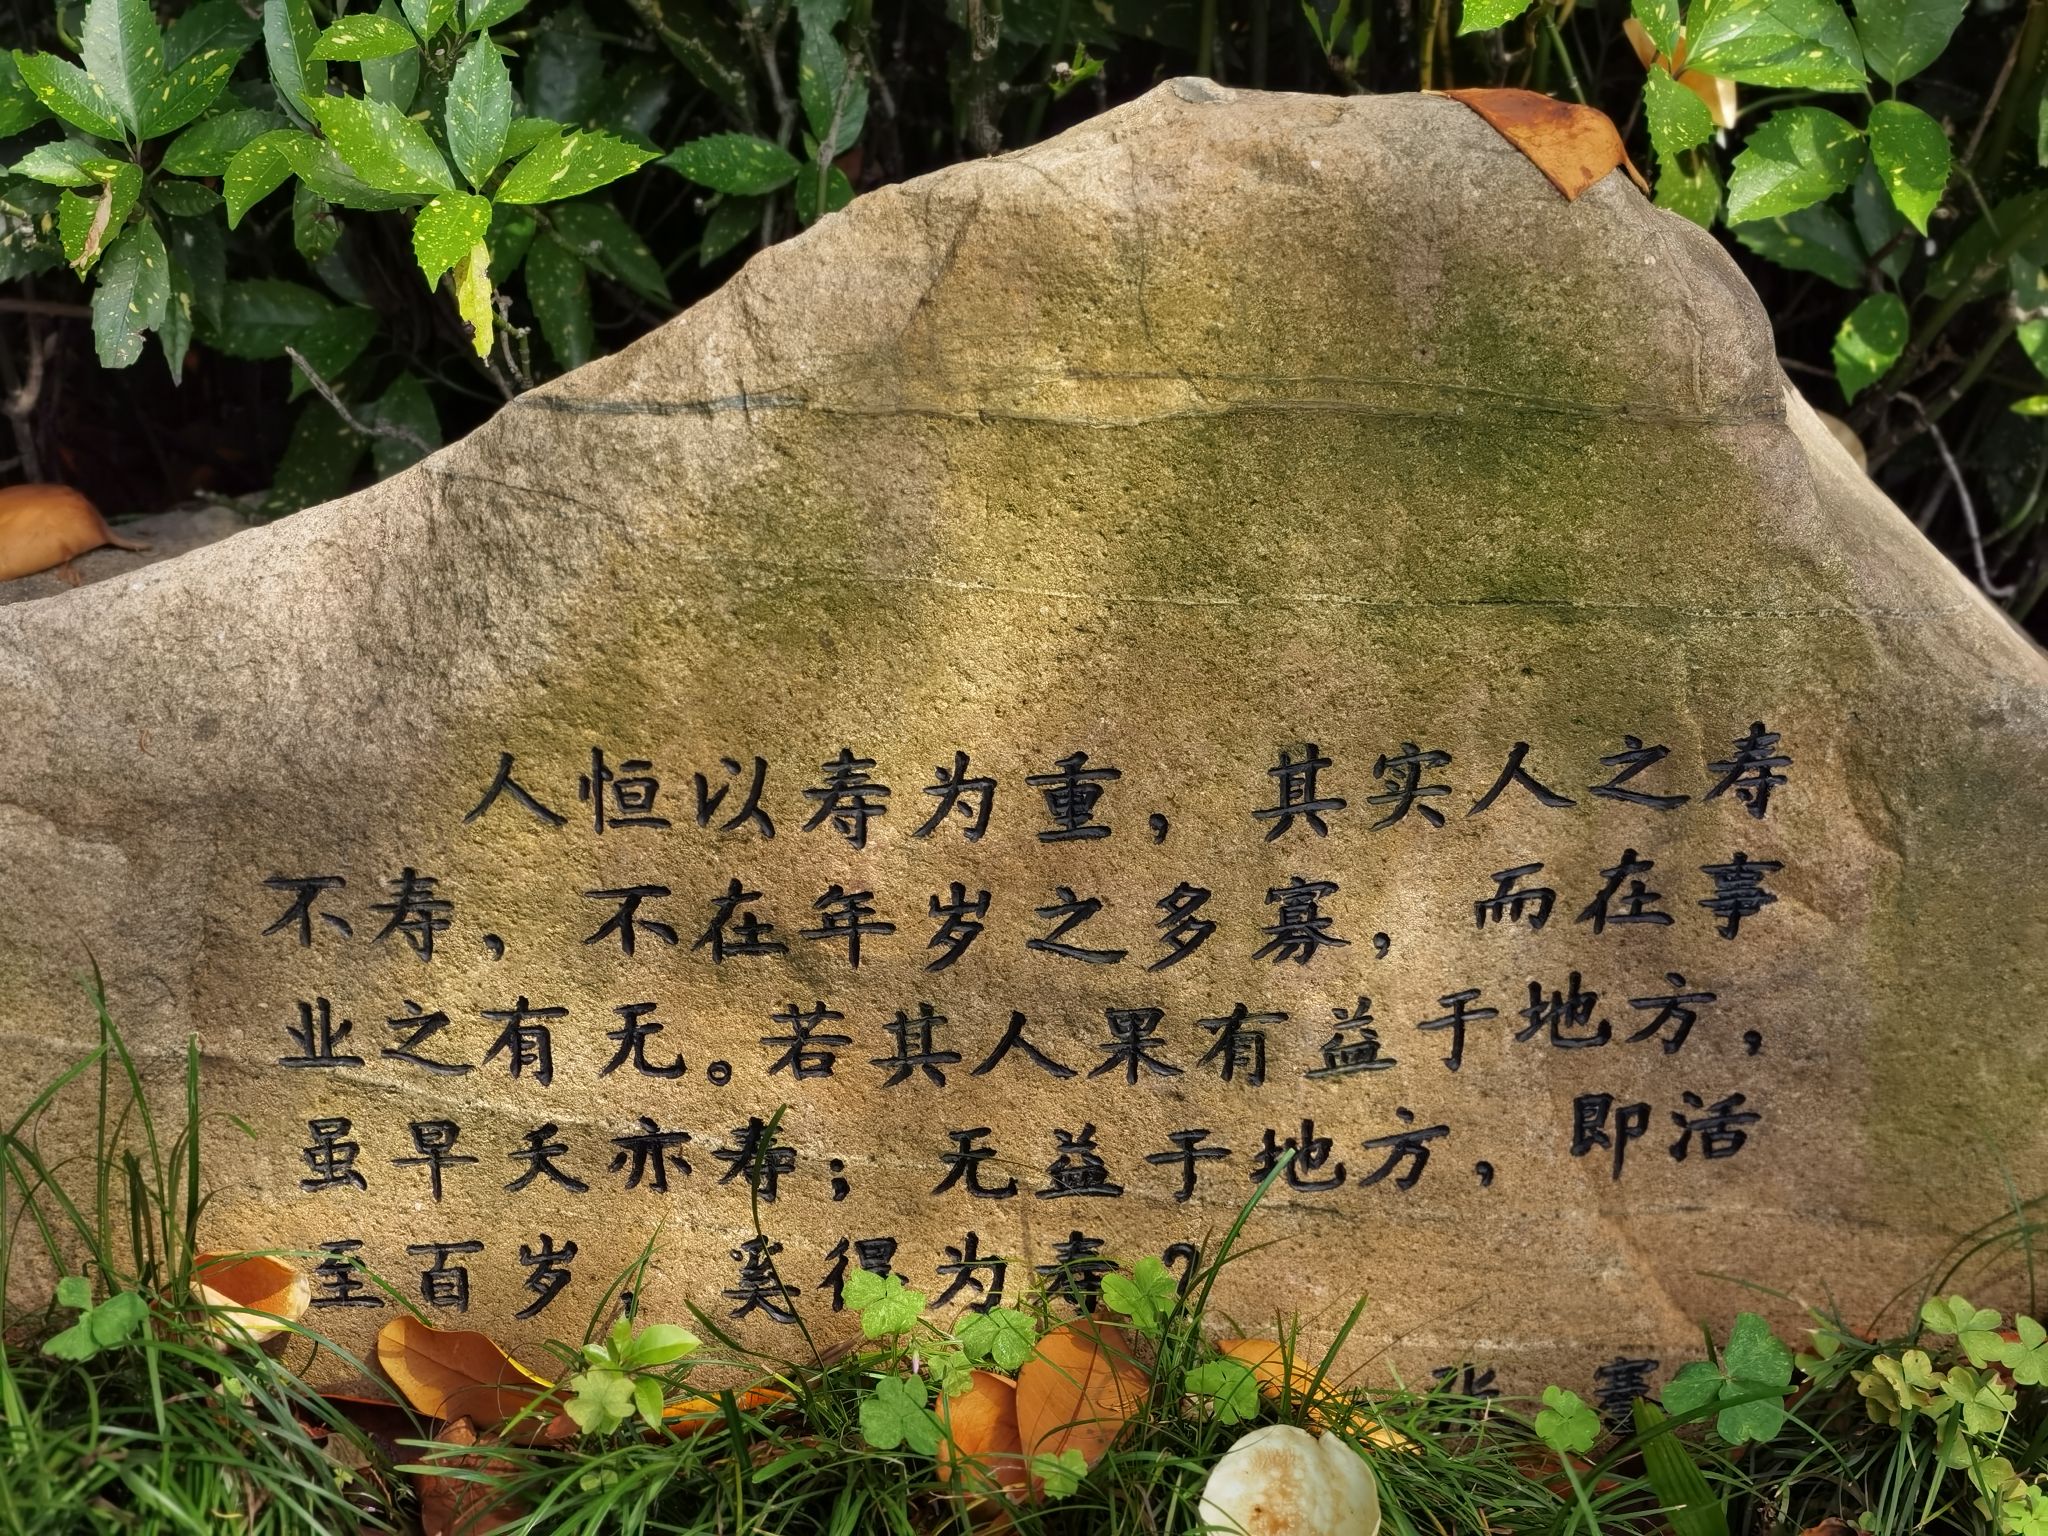 人恒以寿为重，其实人之寿
不寿，不在年岁之多寡，而在事
业之有无。若其人果有益于地方，
虽早夭亦寿；无益于地方，即活
至百岁，奚得为寿？
张謇